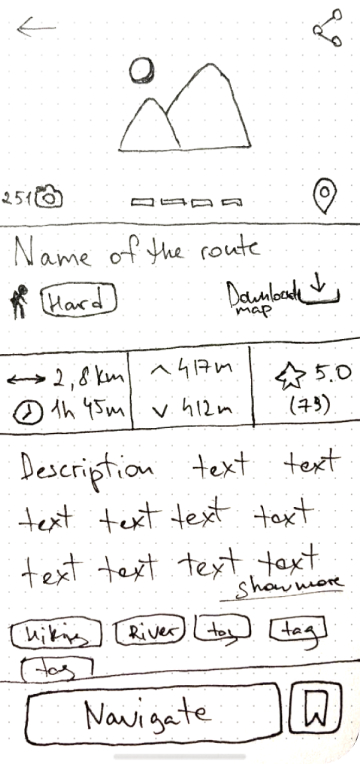 251
Name of the route
Hard
Download
map
2,8 km
1h 45m
417m
412m
5.0
(79)
Description text text
text text text text
text text text text
Show more
Hiking River tag tag
tag
Navigate